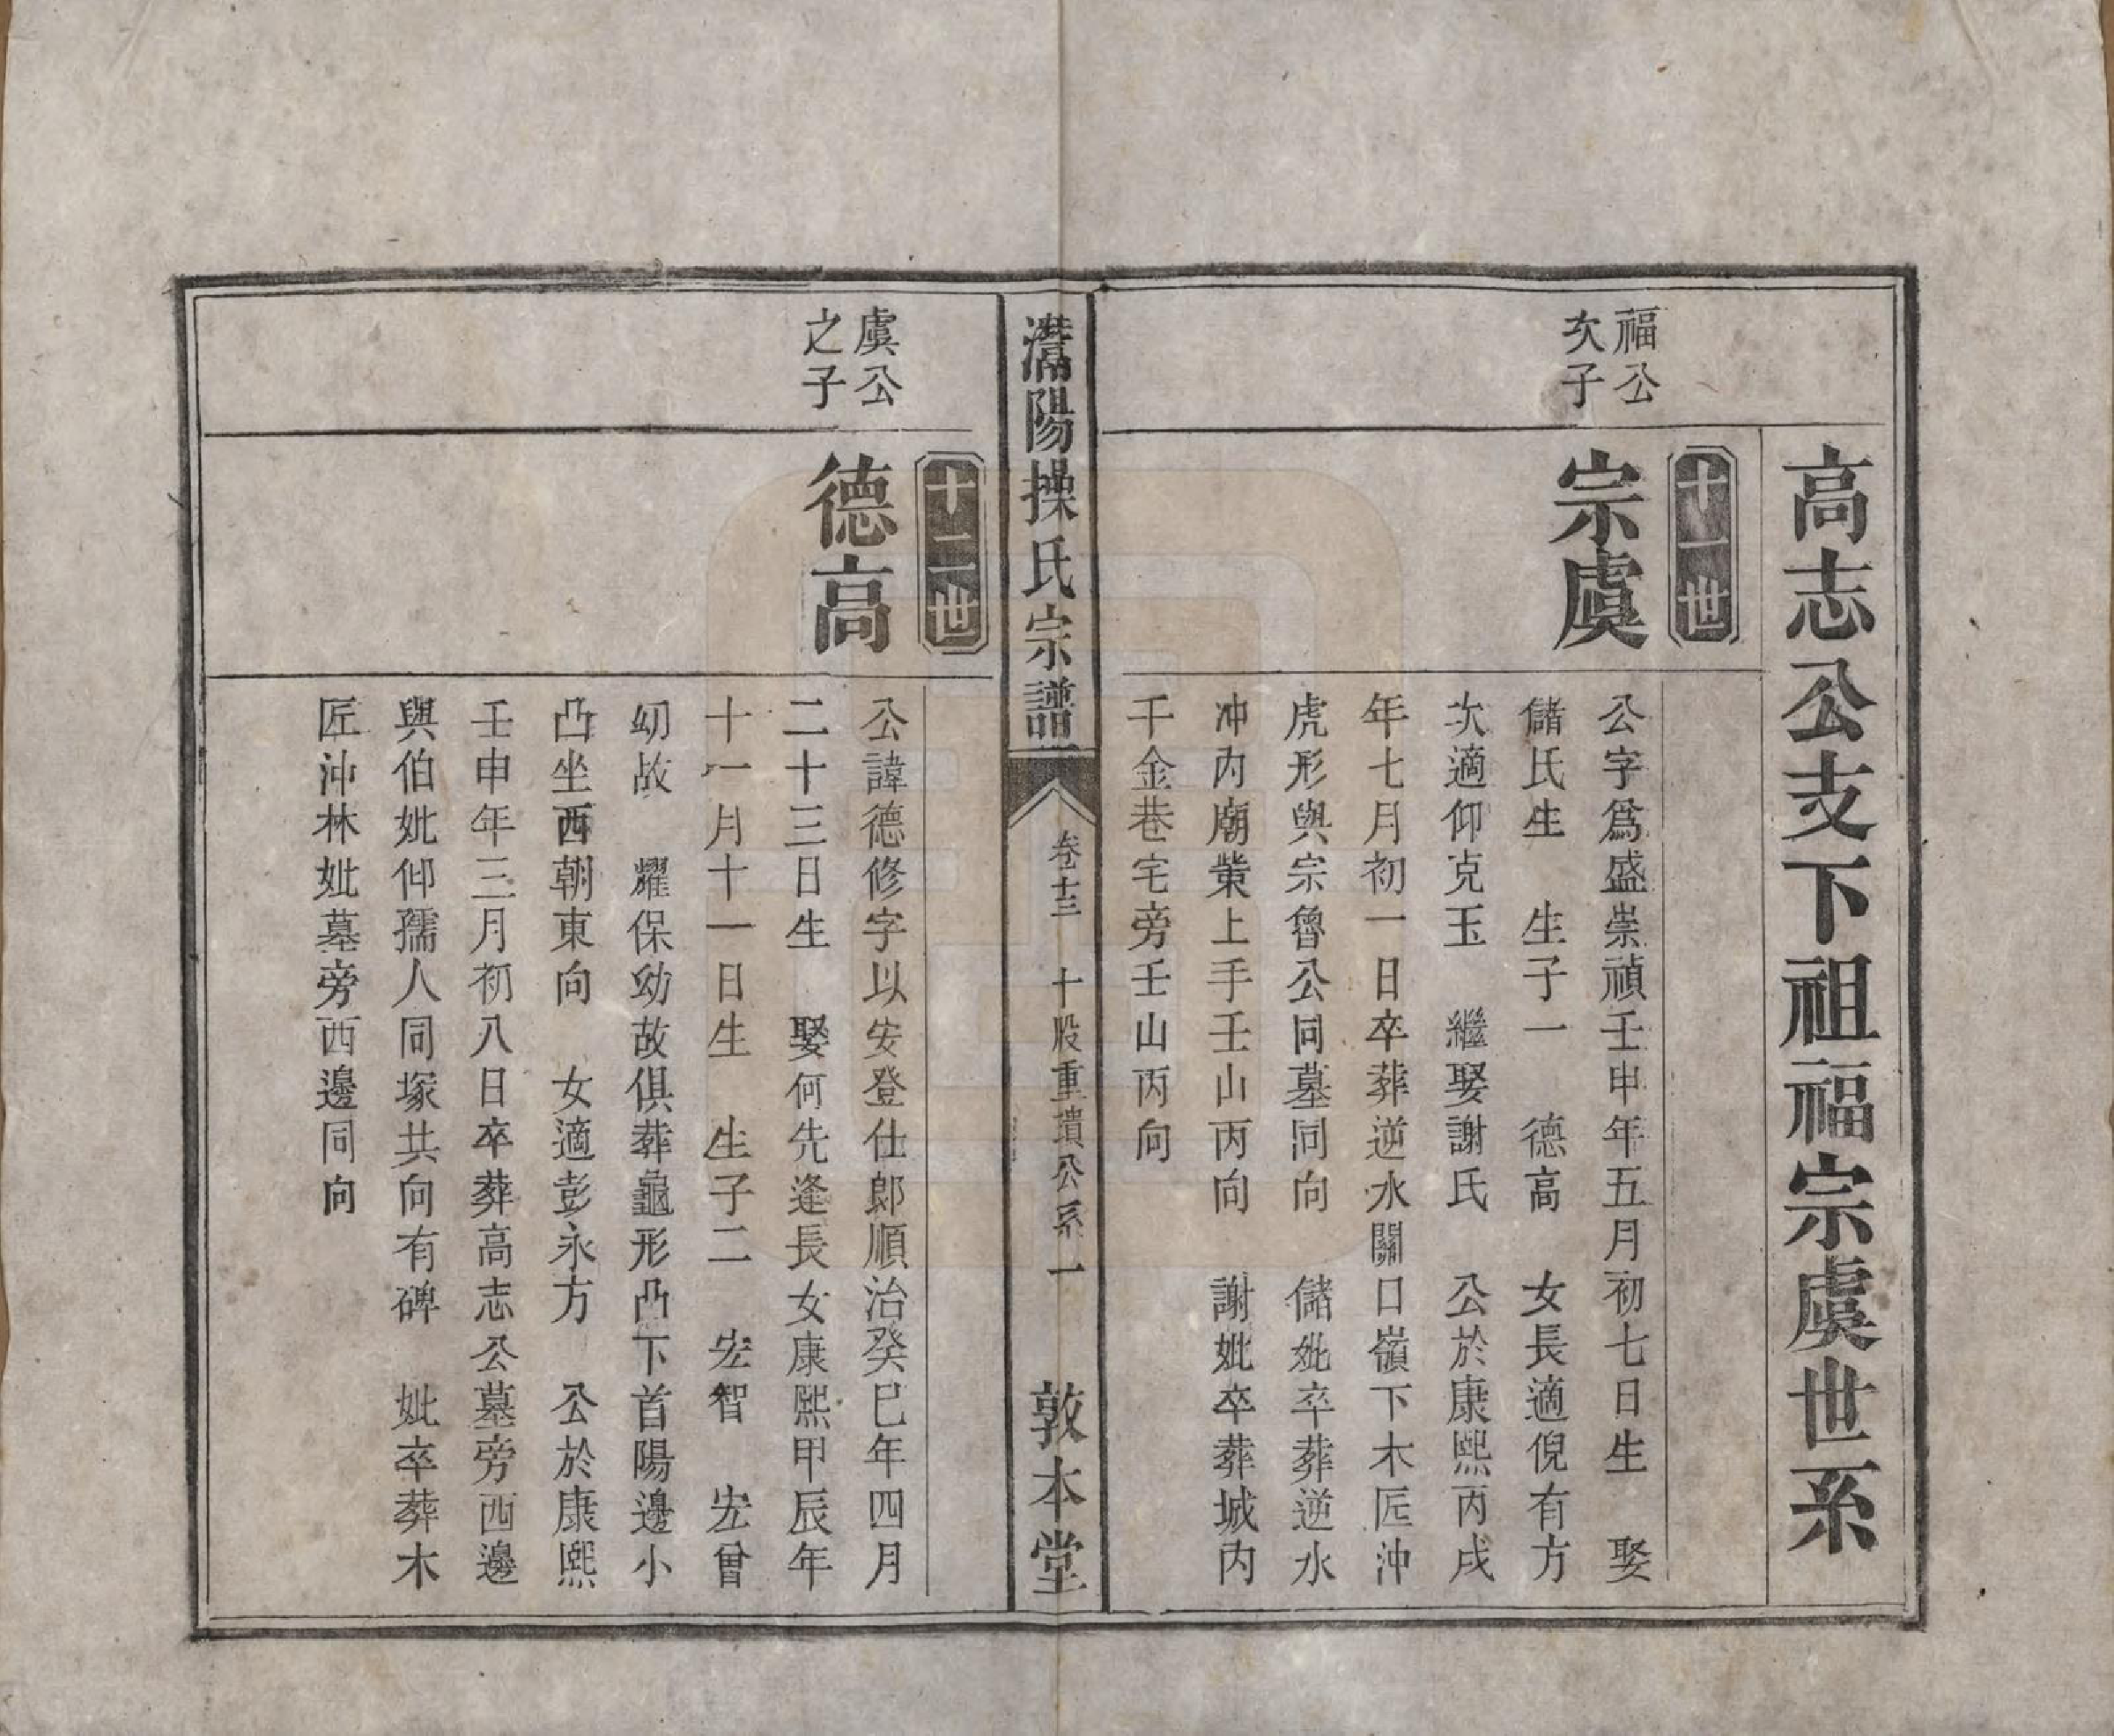 高志公支下祖福宗虞世系
十一世
福公
次子
宗虞
公字爲盛崇禎壬申年五月初七日生　娶
儲氏生　生子一　德高　女長適倪有方
次適仰克玉　繼娶謝氏　公於康熙丙戌
年七月初一日卒葬逆水關口嶺下木匠沖
虎形與宗魯公同墓同向　儲妣卒葬逆水
冲內廟棠上手壬山丙向　謝妣卒葬城內
千金巷宅旁壬山丙向
灊陽操氏宗譜
卷十三　十股重璝公系　一
敦本堂
十二世
虞公
之子
德高
公諱德修字以安登仕郎順治癸巳年四月
二十三日生　娶何先逢長女康熙甲辰年
十一月十一日生　生子二　宏智　宏曾
幼故　耀保幼故俱葬龜形凸下首陽邊小
凸坐西朝東向　女適彭永方　公於康熙
壬申年三月初八日卒葬高志公墓旁西邊
與伯妣仰孺人同塚共向有碑　妣卒葬木
匠沖林妣墓旁西邊同向